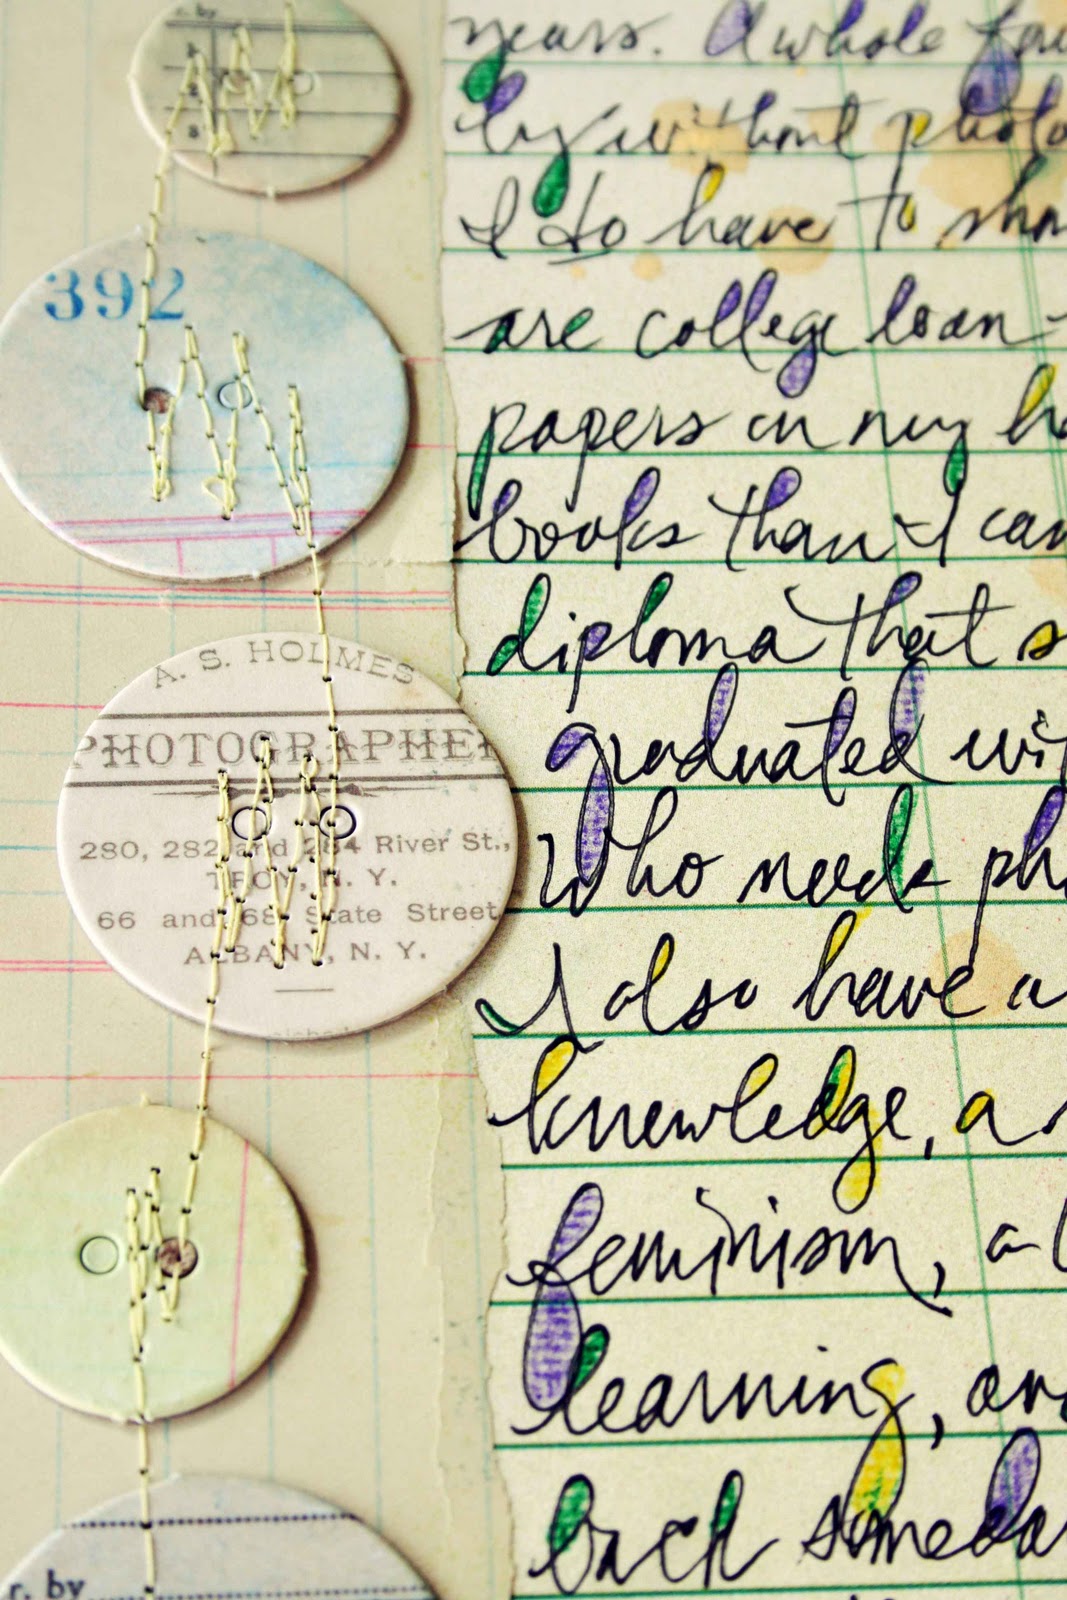 r. by
1
2
3
392
A. S. HOLMES
PHOTOGRAPHER
280, 282 and 284 River St.,
TROY, N. Y.
66 and 68 State Street
ALBANY, N. Y.
r. by
years. A whole
by without photo
I do have to sho
are college loan
papers in my h
books than I can
diploma that s
graduated wi
Who needs ph
I also have a
knowledge, a
feminism, a l
learning, an
back someda